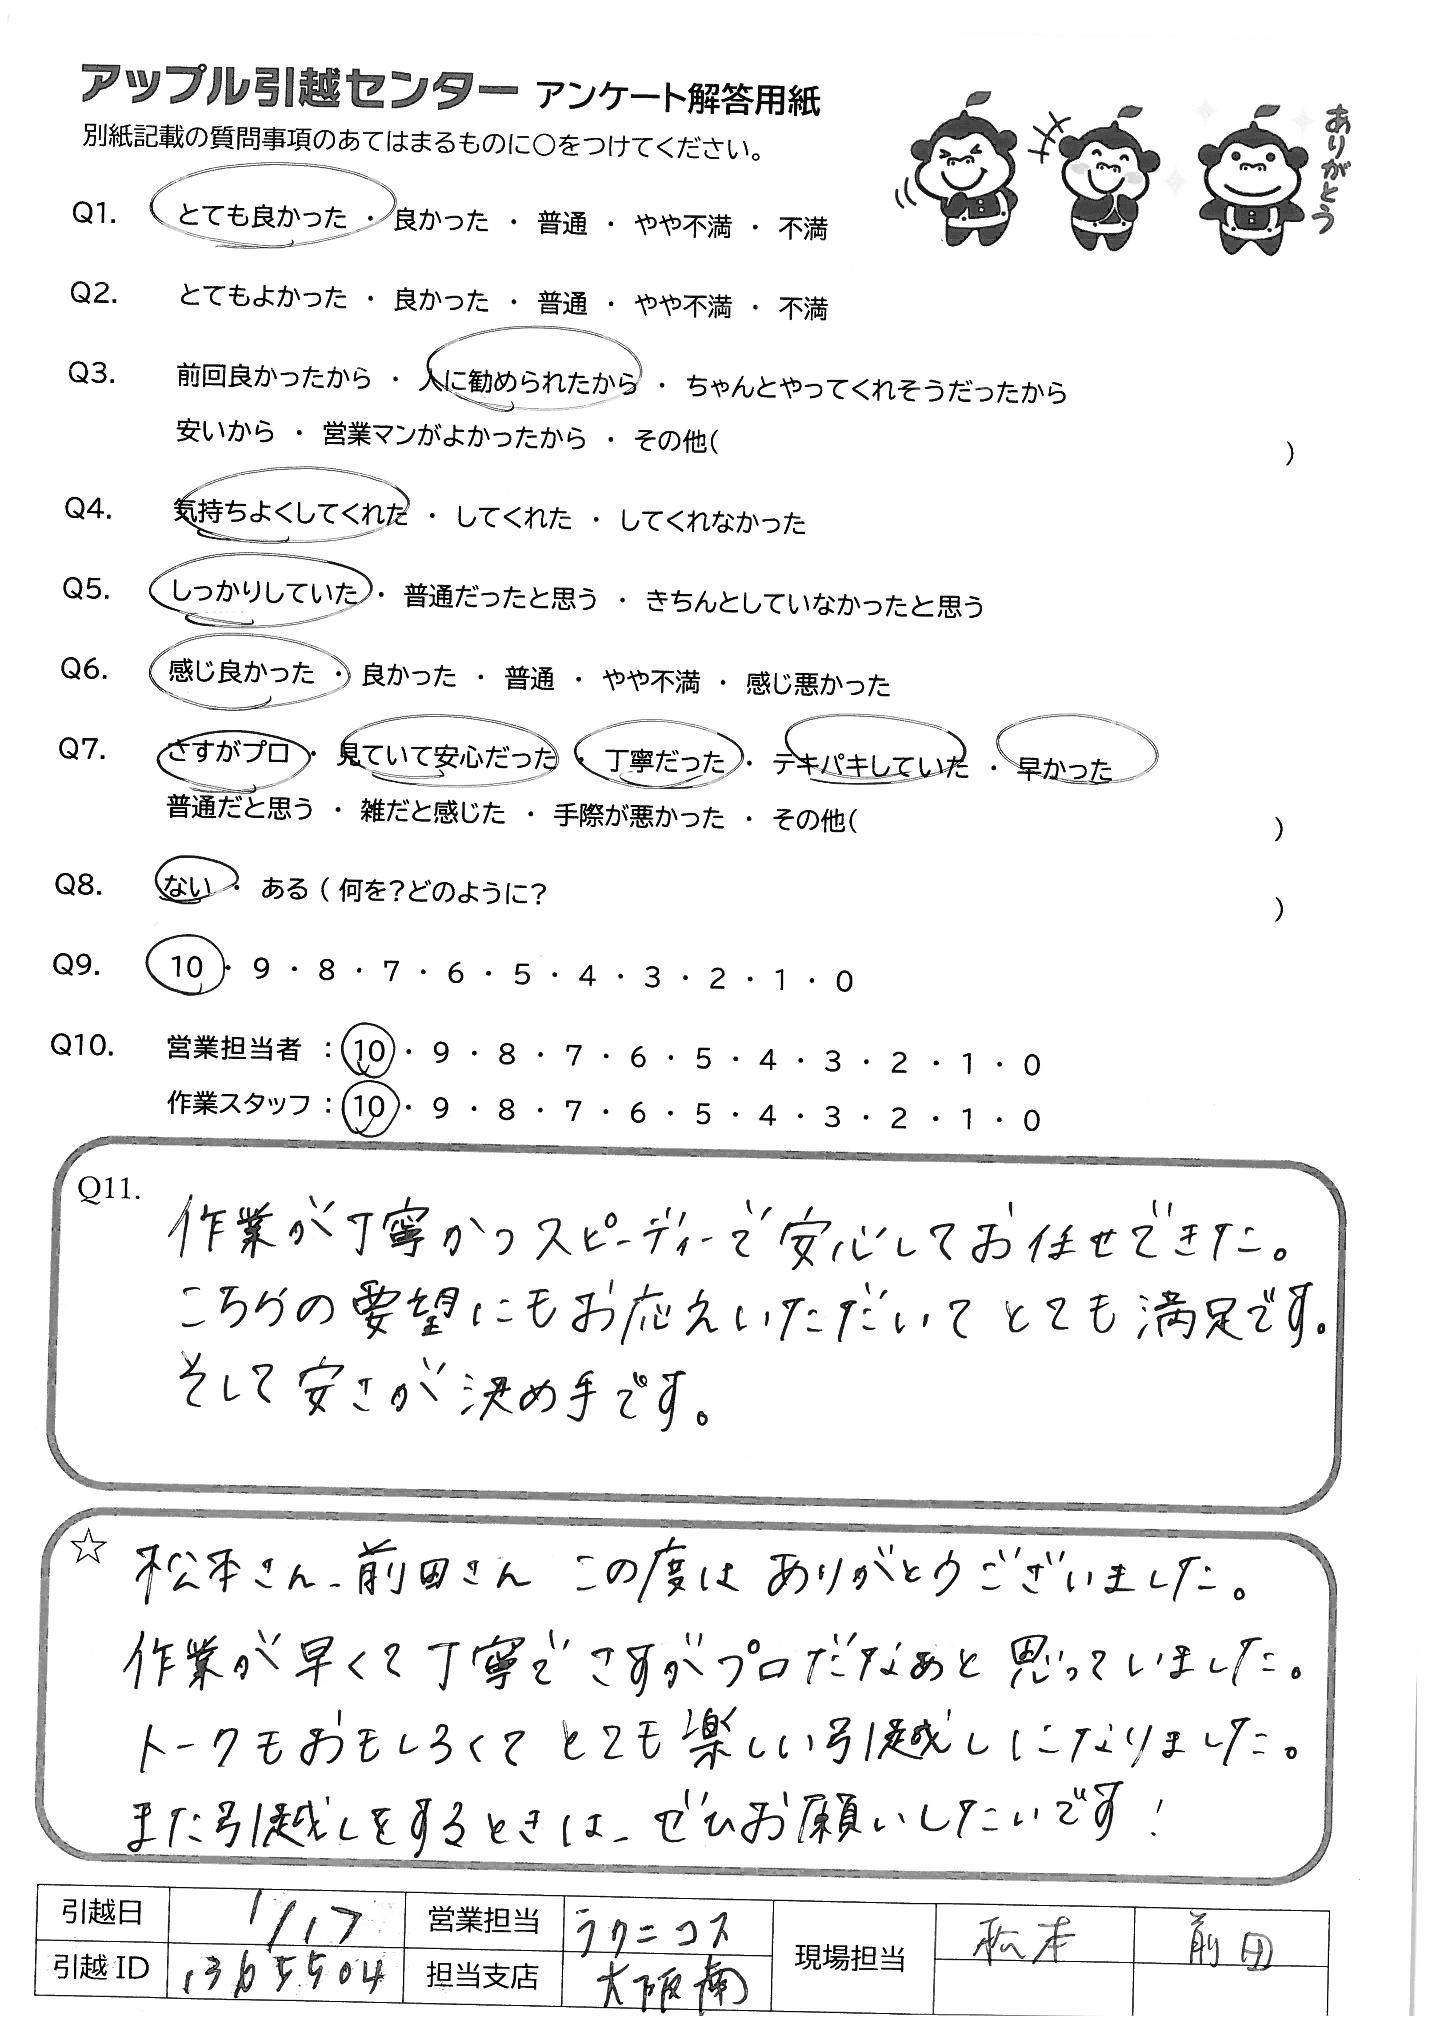 アップル引越センター アンケート解答用紙
別紙記載の質問事項のあてはまるものに○をつけてください。
ありがとう
Q1. とても良かった ・ 良かった ・ 普通 ・ やや不満 ・ 不満
Q2. とてもよかった ・ 良かった ・ 普通 ・ やや不満 ・ 不満
Q3. 前回良かったから ・ 人に勧められたから ・ ちゃんとやってくれそうだったから
安いから ・ 営業マンがよかったから ・ その他( )
Q4. 気持ちよくしてくれた ・ してくれた ・ してくれなかった
Q5. しっかりしていた ・ 普通だったと思う ・ きちんとしていなかったと思う
Q6. 感じ良かった ・ 良かった ・ 普通 ・ やや不満 ・ 感じ悪かった
Q7. さすがプロ ・ 見ていて安心だった ・ 丁寧だった ・ テキパキしていた ・ 早かった
普通だと思う ・ 雑だと感じた ・ 手際が悪かった ・ その他( )
Q8. ない ・ ある ( 何を?どのように? )
Q9. 10 ・ 9 ・ 8 ・ 7 ・ 6 ・ 5 ・ 4 ・ 3 ・ 2 ・ 1 ・ 0
Q10. 営業担当者 : 10 ・ 9 ・ 8 ・ 7 ・ 6 ・ 5 ・ 4 ・ 3 ・ 2 ・ 1 ・ 0
作業スタッフ : 10 ・ 9 ・ 8 ・ 7 ・ 6 ・ 5 ・ 4 ・ 3 ・ 2 ・ 1 ・ 0
Q11. 作業が丁寧かつスピーディーで安心してお任せできた。
こちらの要望にもお応えいただいてとても満足です。
そして安さが決め手です。
☆ 松本さん、前田さん この度はありがとうございました。
作業が早くて丁寧でさすがプロだなぁと思っていました。
トークもおもしろくてとても楽しい引越しになりました。
また引越しをするときは、ぜひお願いしたいです!
引越日 1/17 営業担当 ラクニコス 現場担当 松本 前田
引越ID 1365504 担当支店 大阪南